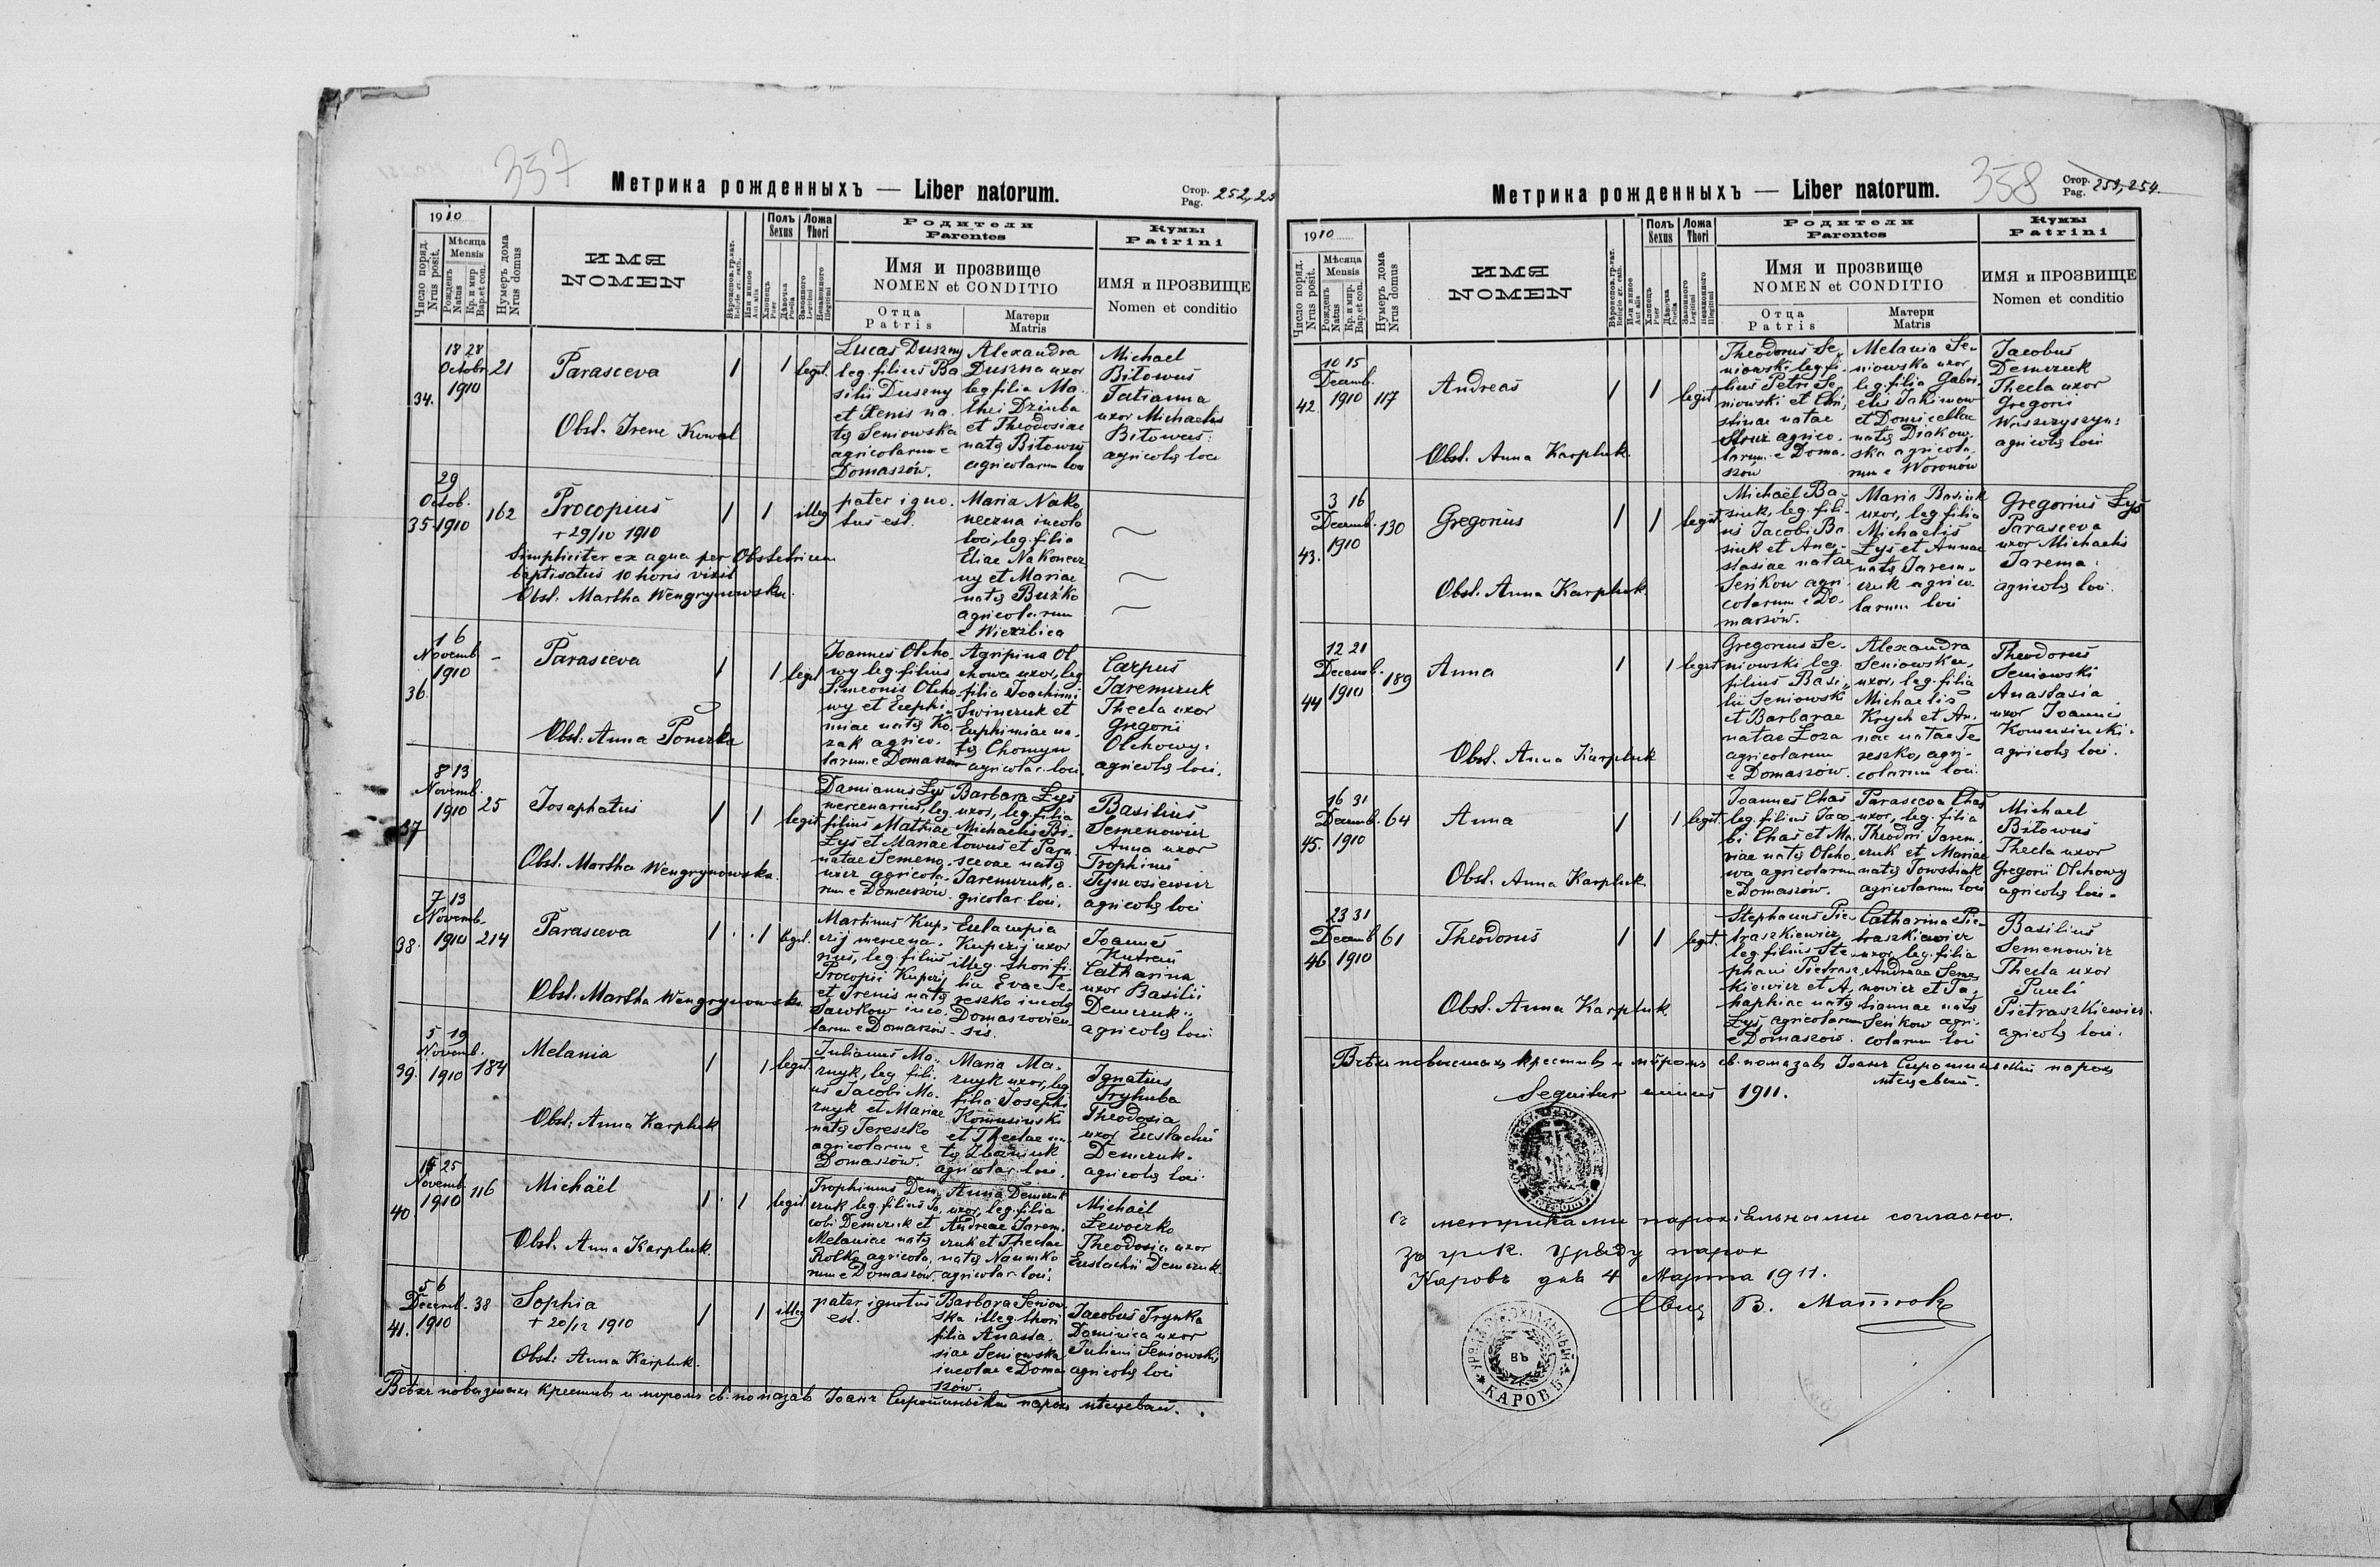 357
Метрика рожденныхъ — Liber natorum.
Стор. Pag. 252, 25
1910
Число поряд. Nrus posit.
Мѣсяца Mensis
Рожденъ Natus
Кр. и мир. Bap. et con.
Нумеръ дома Nrus domus
ИМЯ
NOMEN
Вѣроиспов. гр. кат. Religio gr. cath.
Или инное Aut alia
Полъ Sexus
Хлопець Puer
Дѣвочка Puella
Ложа Thori
Законного Legitimi
Незаконного Illegitimi
Родители
Parentes
Имя и прозвище
NOMEN et CONDITIO
Отца Patris
Матери Matris
Кумы
Patrini
ИМЯ и ПРОЗВИЩЕ
Nomen et conditio
34.
18 28
Octobr.
1910
21
Parasceva
Obst. Irene Kowal
1 1 legit.
Lucas Duszny
leg. filius Ba
silii Duszny
et Xenis na.
tę Seniowska
agricolarum e
Domaszów.
Alexandra
Duszna uxor
leg. filia Ma.
thei Dziuba
et Theodosiae
natę Bitowuś
agricolarum loci
Michael
Bitowuś
Tatianna
uxor Michaelis
Bitowuś:
agricolę loci
35.
29
Octob.
1910
162
Procopius
+ 29/10 1910
Simpliciter ex aqua per Obstetricem
baptisatus 10 horis vixit
Obst. Martha Wengrynowska.
1 1 illeg
pater igno.
tus est.
Maria Nako
neczna incolę
loci, leg. filia
Eliae Nakonecz
ny et Mariae
natę Buźko
agricolarum
e Wierzbica
36.
1 6
Novemb.
1910
-
Parasceva
Obst: Anna Ponczka
1 1 legit
Joannes Olcho
wy leg. filius
Simeonis Olcho
wy et Euphi
miae natę Ko
zak agrico.
larum e Domaszów
Agripina Ol
chowa uxor, leg
filia Joachimi
Swinczuk et
Euphimiae na.
tę Chomyn
agricolar. loci.
Carpus
Jaremczuk
Thecla uxor
Gregorii
Olchowy.
agricolę loci.
37
8 13
Novemb.
1910
25
Josaphatus
Obst. Martha Wengrynowska.
1 1 legit
Damianus Łyś
mercenarius, leg.
filius Mathiae
Łyś et Mariae
natae Semeno.
wicz agricola.
rum e Domaszów.
Barbara Łyś
uxor, leg. filia
Michaelis Bi.
towus et Para
scevae natę
Jaremczuk, a.
gricolar. loci.
Basilius
Semenowicz
Anna uxor
Trophimi
Tymosiewicz
agricolę loci
38.
7 13
Novemb.
1910
214
Parasceva
Obst. Martha Wengrynowska.
1 1 legit.
Martinus Kup.
czij mercena.
rius, leg. filius
Procopii Kupczij
et Irenis natę
Sawkow inco.
larum e Domaszów.
Eulampia
Kupczij uxor
illeg. thori fi.
lia Evae Te.
reszko incolę
Domaszovien
sis.
Joannes
Catharina
uxor Basilii
Demczuk..
agricolę loci.
39.
5 19
Novemb.
1910
184
Melania
Obst: Anna Karpluk
1 1 legit.
Julianus Ma..
znyk, leg. fili.
us Jacobi Ma.
znyk et Mariae
natę Tereszko
agricolarum e
Domaszów.
Maria Ma.
znyk uxor, leg
filia Josephi
Komusinski
et Theclae na..
tę Zbaniuk
agricolar. loci.
Ignatius
Tryhuba
Theodosia
uxor Eustachii
Demczuk.
agricolę loci.
40.
25
Novemb.
1910
116
Michaël
Obst. Anna Karpluk.
1 1 legit
Trophimus Dem.
czuk leg. filius Ja.
cobi Demczuk et
Melaniae natę
Rolko agricola.
rum e Domaszów.
Anna Demczuk
uxor, leg. filia
Andreae Jarem.
czuk et Theclae
natę Naumko
agricolar. loci.
Michaël
Lewoczko
Theodosia uxor
Eustachii Demczuk.
41.
5 6
Decemb.
1910
38
Sophia
+ 20/12 1910
Obst: Anna Karpluk.
1 1 illeg
pater ignotus
est.
Barbara Seniow
ska illeg. thori
filia Anasta.
siae Seniowska
incolae e Doma
szów.
Jacobus Trynka
Dominica uxor
Juliani Seniowski
agricolę loci
Всѣхъ повызшихъ крестивъ и мѵромъ св. помазавъ Іоаннъ Сиротинскій парохъ мѣсцевый.
358
Метрика рожденныхъ — Liber natorum.
Стор. Pag. 253, 254.
1910
Число поряд. Nrus posit.
Мѣсяца Mensis
Рожденъ Natus
Кр. и мир. Bap. et con.
Нумеръ дома Nrus domus
ИМЯ
NOMEN
Вѣроиспов. гр. кат. Religio gr. cath.
Или инное Aut alia
Полъ Sexus
Хлопець Puer
Дѣвочка Puella
Ложа Thori
Законного Legitimi
Незаконного Illegitimi
Родители
Parentes
Имя и прозвище
NOMEN et CONDITIO
Отца Patris
Матери Matris
Кумы
Patrini
ИМЯ и ПРОЗВИЩЕ
Nomen et conditio
42.
10 15
Decemb.
1910
117
Andreas
Obst. Anna Karpluk.
1 1 legit
Theodorus Se.
niowski leg. fi.
lius Petri Se.
niowski et Chri.
stinae natae
agrico.
larum e Doma.
szów
Melania Se.
niowska uxor
leg. filia Gabri.
elis Jakimow
et Domicellae
natę Diakow.
ska agricola.
rum e Woronów
Jacobus
Demczuk
Thecla uxor
Gregorii
Wuszczyszyn:
agricolę loci
43.
3 16
Decemb.
1910
130
Gregorius
Obst. Anna Karpluk
1 1 legit.
Michaël Ba.
siuk, leg. fili.
us Jacobi Ba
siuk et Ana.
stasiae natae
Senkow agri.
colarum e Do.
maszów.
Maria Basiuk
uxor, leg. filia
Michaelis
Łyś et Annae
natę Jarem.
czuk agrico.
larum loci
Gregorius Łyś
Parasceva
uxor Michaelis
Jarema.
agricolę loci.
44
12 21
Decemb.
1910
189
Anna
Obst. Anna Karpluk
1 1 legit.
Gregorius Se.
niowski leg.
filius Basi.
lii Seniowski
et Barbarae
natae Łoza
agricolarum
e Domaszów.
Alexandra
Seniowska,
uxor, leg. filia
Michaelis
Krych et An.
nae natae Te.
reszko, agri.
colarum loci.
Theodorus
Seniowski
Anastasia
uxor Joannis
Komusinski.
agricolę loci.
45.
16 31
Decemb.
1910
64
Anna
Obst. Anna Karpluk
1 1 legit.
Joannes Chaś
leg. filius Jaco.
bi Chaś et Ma.
riae natę Olcho.
wa agricolarum
e Domaszów.
Parasceva Chaś
uxor, leg. filia
Theodori Jarem.
czuk et Mariae
natę Towstiak
agricolarum loci
Michael
Bitowuś
Thecla uxor
Gregorii Olchowy
agricolę loci.
46
23 31
Decemb.
1910
61
Theodorus
Obst. Anna Karpluk.
1 1 legit.
Stephanus Pie.
traszkiewicz
leg. filius Ste.
phani Pietrasz.
kiewicz et A.
haphiae natę
Łyś, agricolarum
e Domaszów.
Catharina Pie.
traszkiewicz
uxor, leg. filia
Andreae Seme.
nowicz et Ta.
tiannae natę
Senkow agri.
colarum loci
Basilius
Semenowicz
Thecla uxor
Pauli
Pietraszkiewicz.
agricolę loci.
Всѣхъ повысшихъ крестивъ и мѵромъ св. помазавъ Іоаннъ Сиротинскій парохъ
мѣсцевый.
Sequitur annus 1911.
Съ метриками парохіальными согласно.
Зъ гр. к. Уряду парох
Каровъ дня 4 Марта 1911.
В. Матюк
УРЯДЪ ПАРОХІАЛЬНЫЙ ВЪ КАРОВѢ